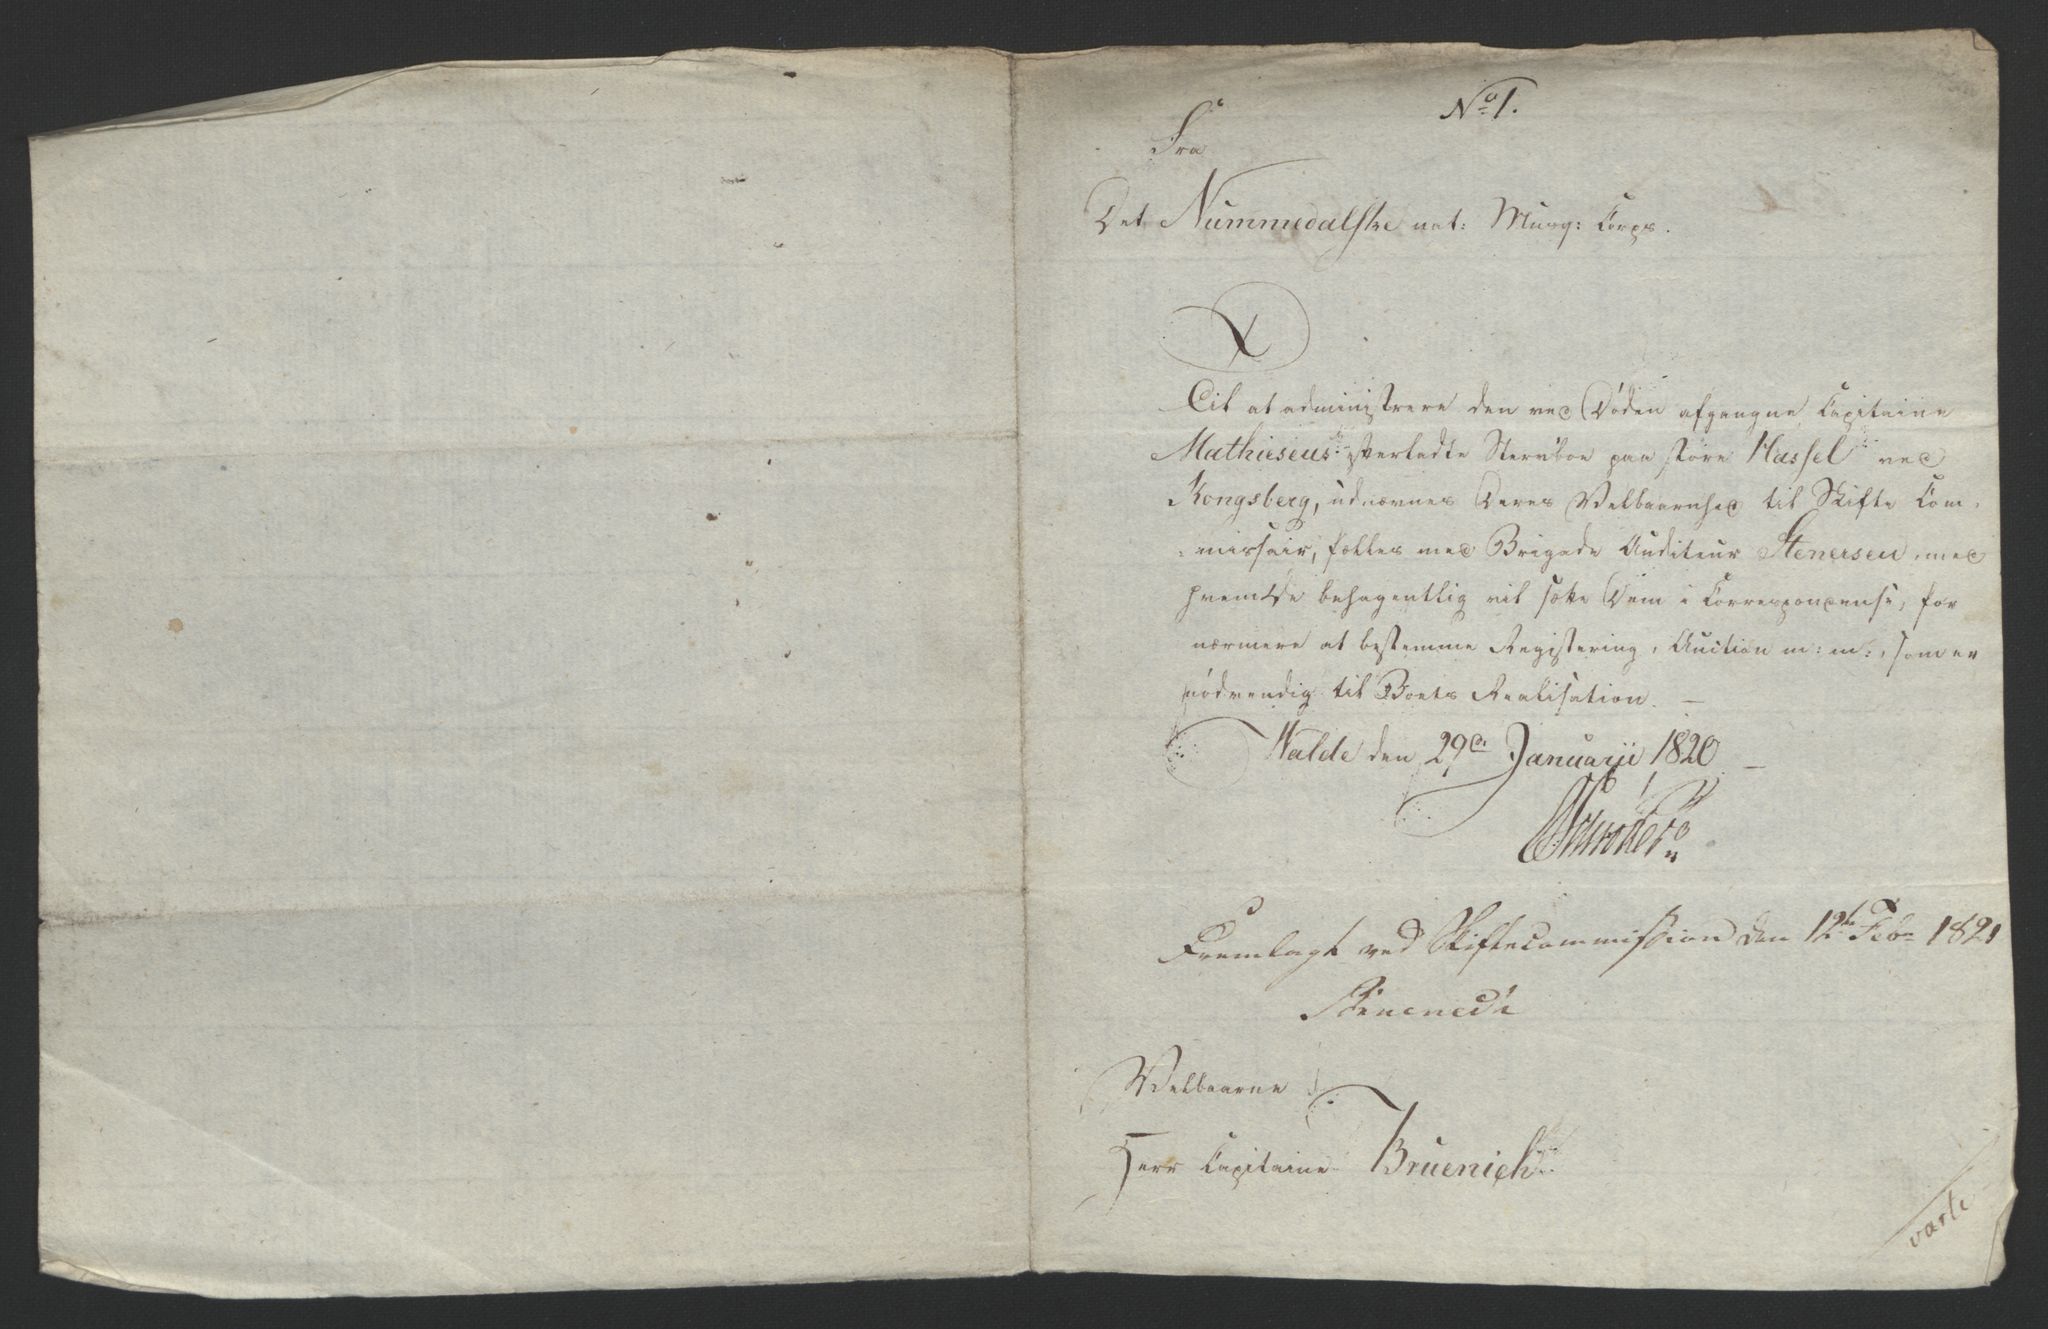 No 1.
Fra
Det Nummedalske nat: Musq: Corps.
Til at administrere den ved Døden afgangne Capitaine
Mathiesens efterladte Stervboe paa store Hassel ved
Kongsberg, udnævnes Deres Velbaarnhed til Skifte Com-
-missair, fælles med Brigade Auditeur Stenersen, med
hvem De behagentlig vil sætte Dem i Correspondense, for
nærmere at bestemme Registering, Auction m: m:, som er
nødvendig til Boets Realisation. —
Walde den 29de Januarii 1820 —
Fremlagt ved Skiftecommission den 12te Febr 1821
Velbaarne
Herr Capitaine Bruenich
varte